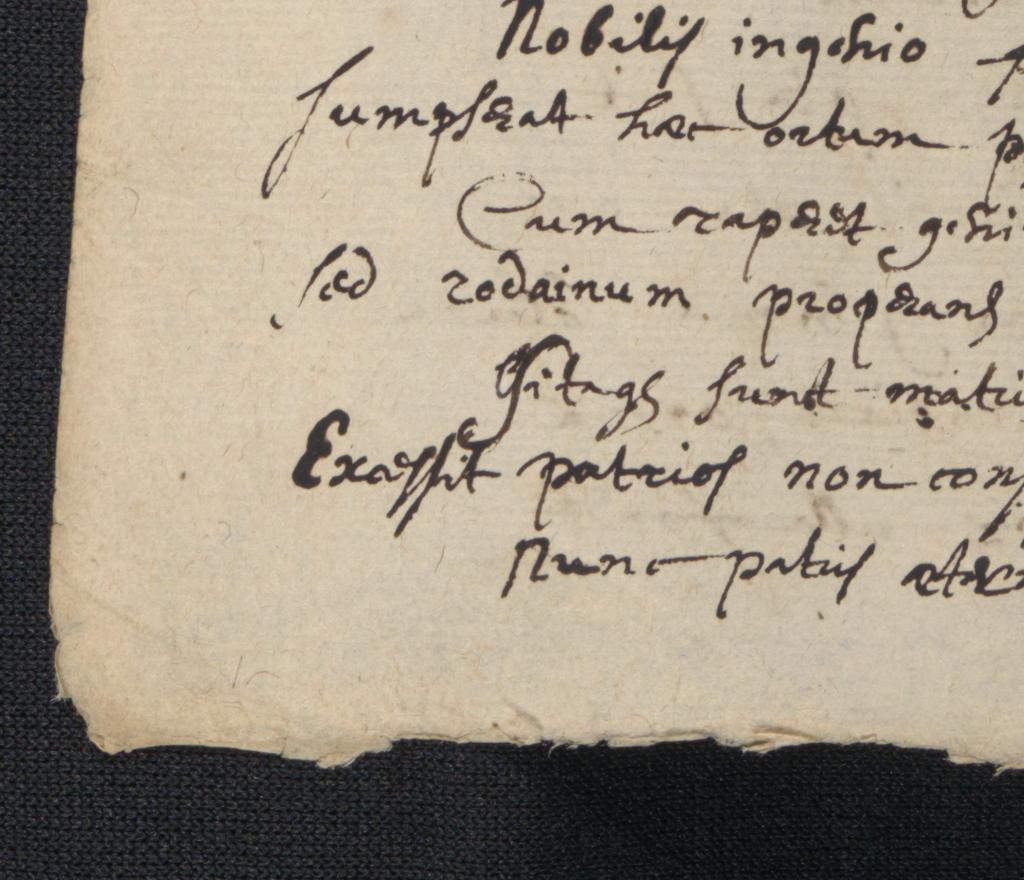 Nobilis ingenio
sumpserat haec ortum
Cum raperet geni
sed rodainum properans
sunt
Excessit patrios non con
Nunc patris aeter